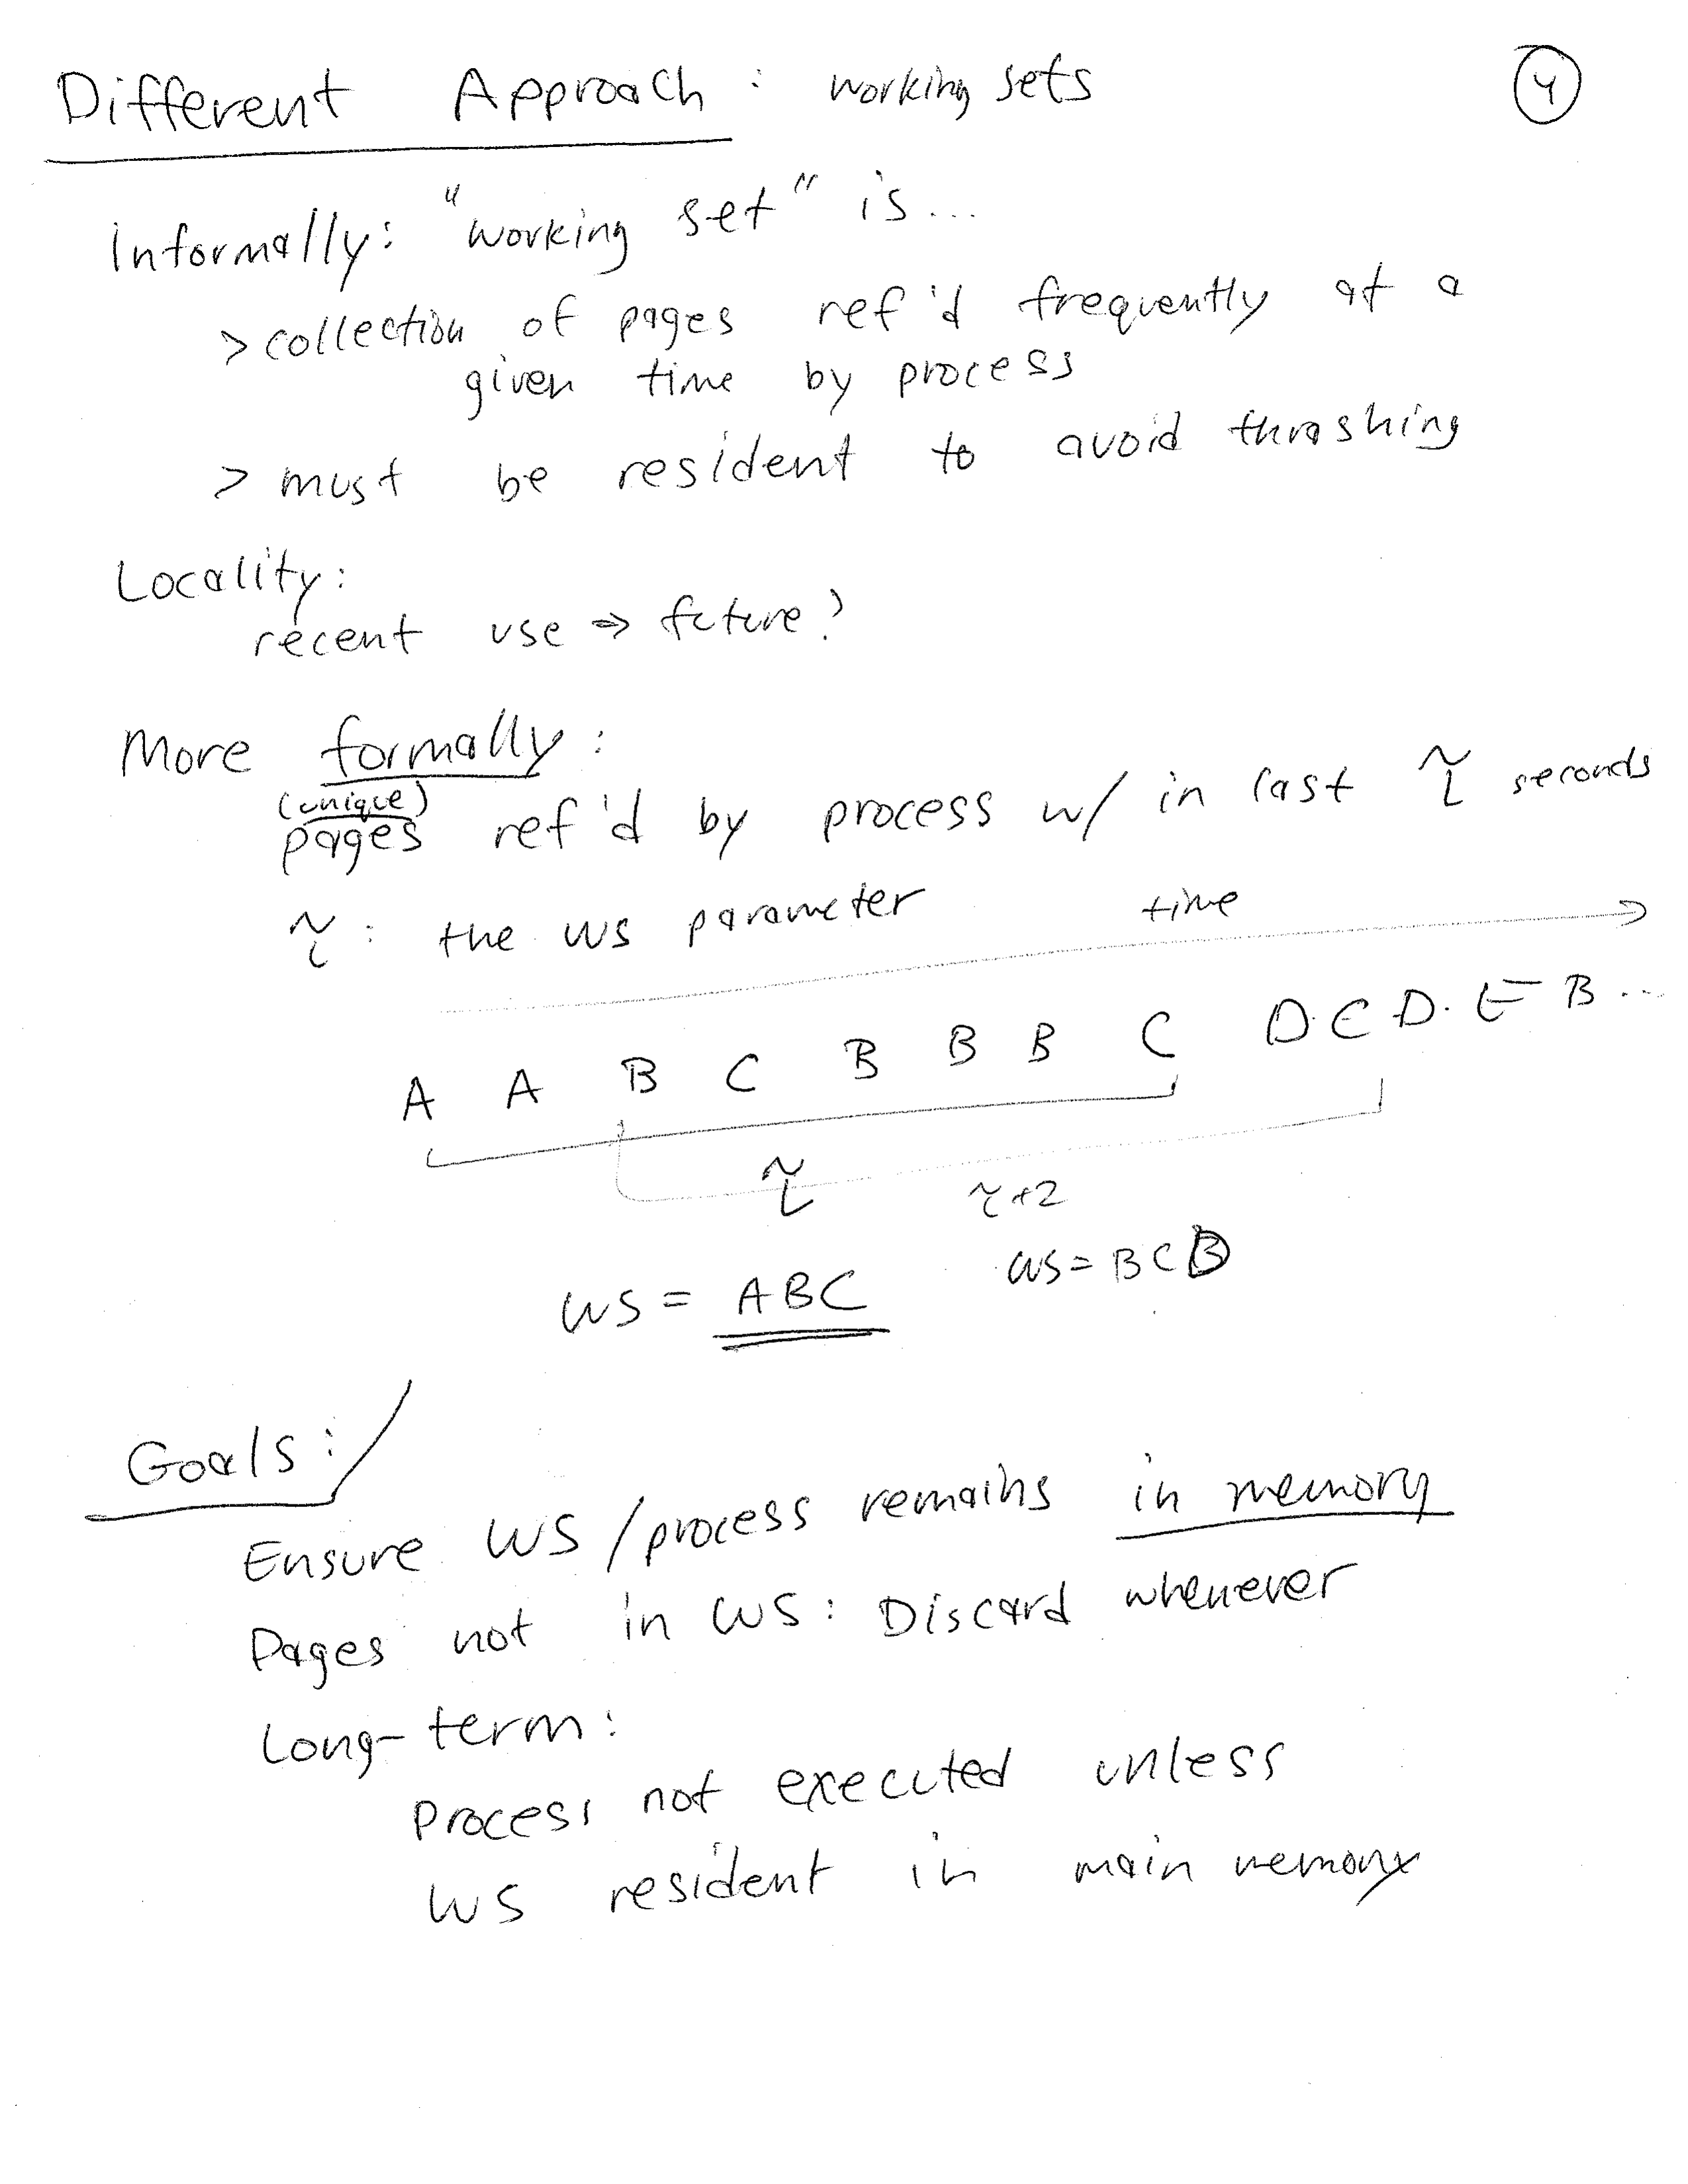 Different Approach: working sets
4
Informally: "working set" is...
> collection of pages ref'd frequently at a
given time by process
> must be resident to avoid thrashing
Locality:
recent use ⇒ future?
More formally:
(unique)
pages ref'd by process w/in last τ seconds
τ: the WS parameter
time
A A B C B B B C D C D E B ...
τ
τ+2
WS = ABC
WS = BCD
Goals:
Ensure WS/process remains in memory
Pages not in WS: Discard whenever
Long-term:
Process not executed unless
WS resident in main memory